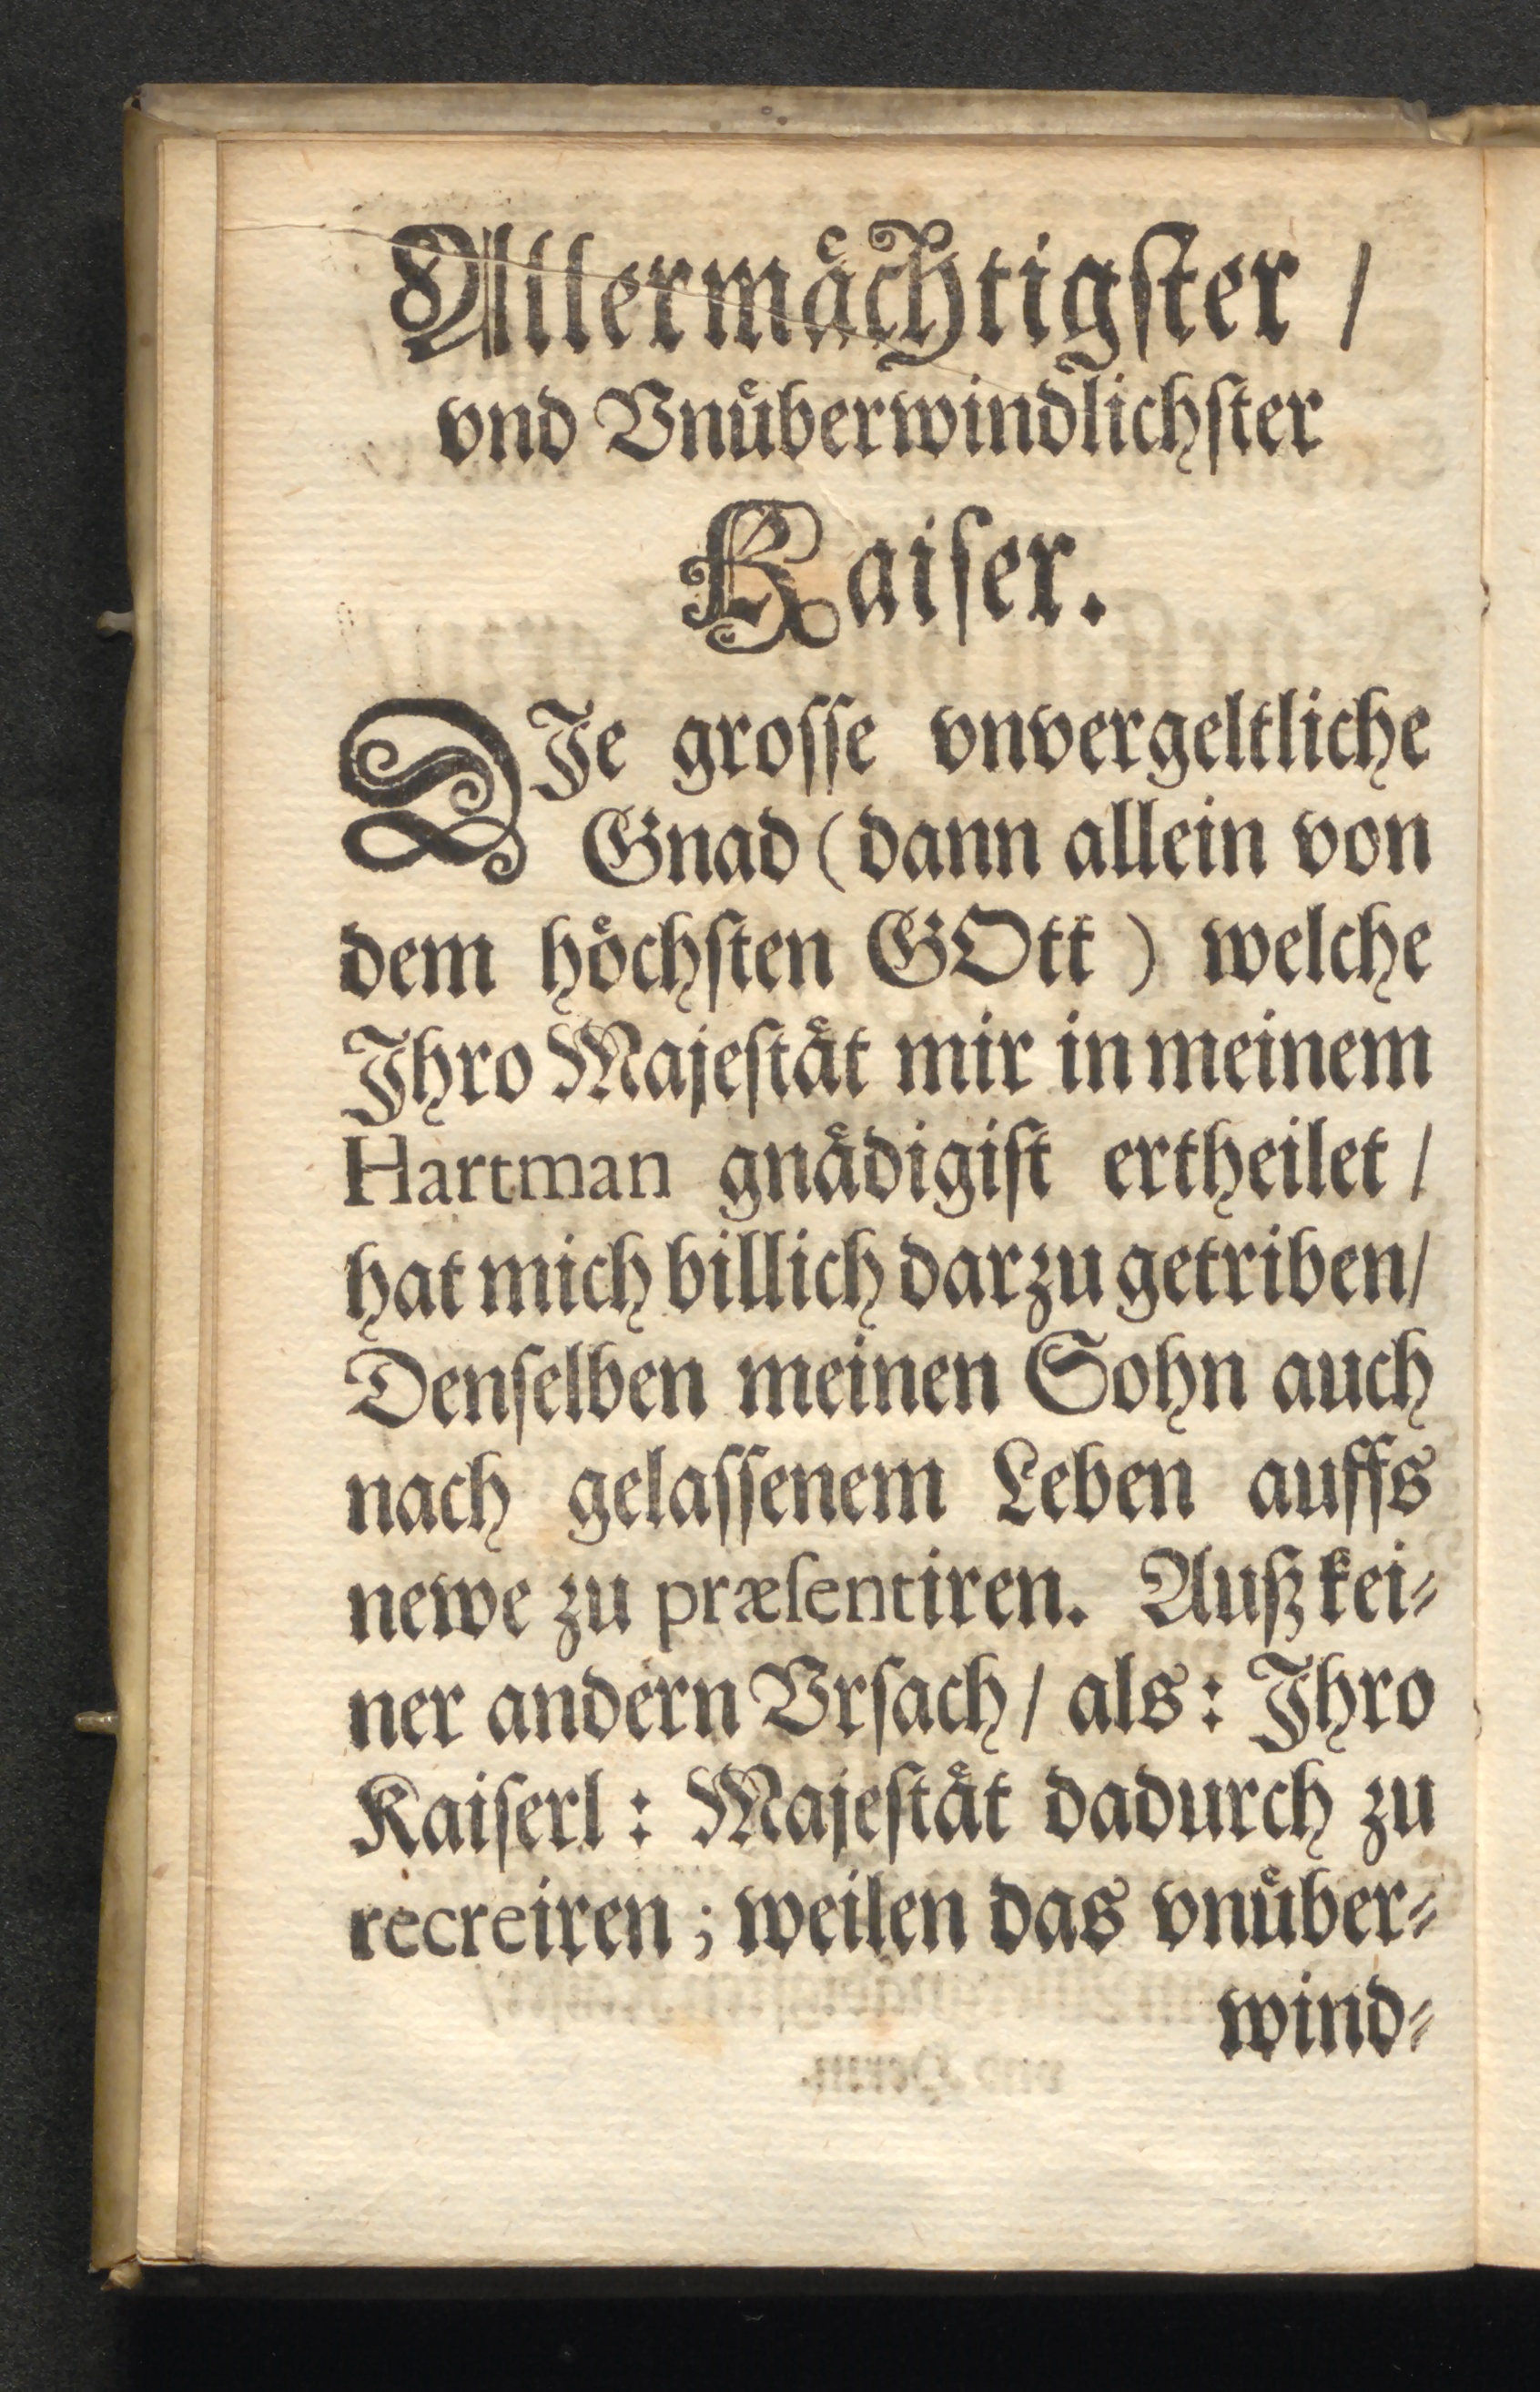 Allermaͤchtigſter /
vnd Vnuͤberwindlichſter
Kaiſer.
DIe groſſe vnvergeltliche
Gnad (dann allein von
dem hoͤchſten GOtt) welche
Ihro Majeſtaͤt mir in meinem
Hartman gnaͤdigiſt ertheilet /
hat mich billich darzu getriben/
Denſelben meinen Sohn auch
nach gelaſſenem Leben auffs
newe zu præſentiren. Auß kei⸗
ner andern Vrſach / als: Ihro
Kaiſerl: Majeſtaͤt dadurch zu
recreiren; weilen das vnuͤber⸗
wind⸗